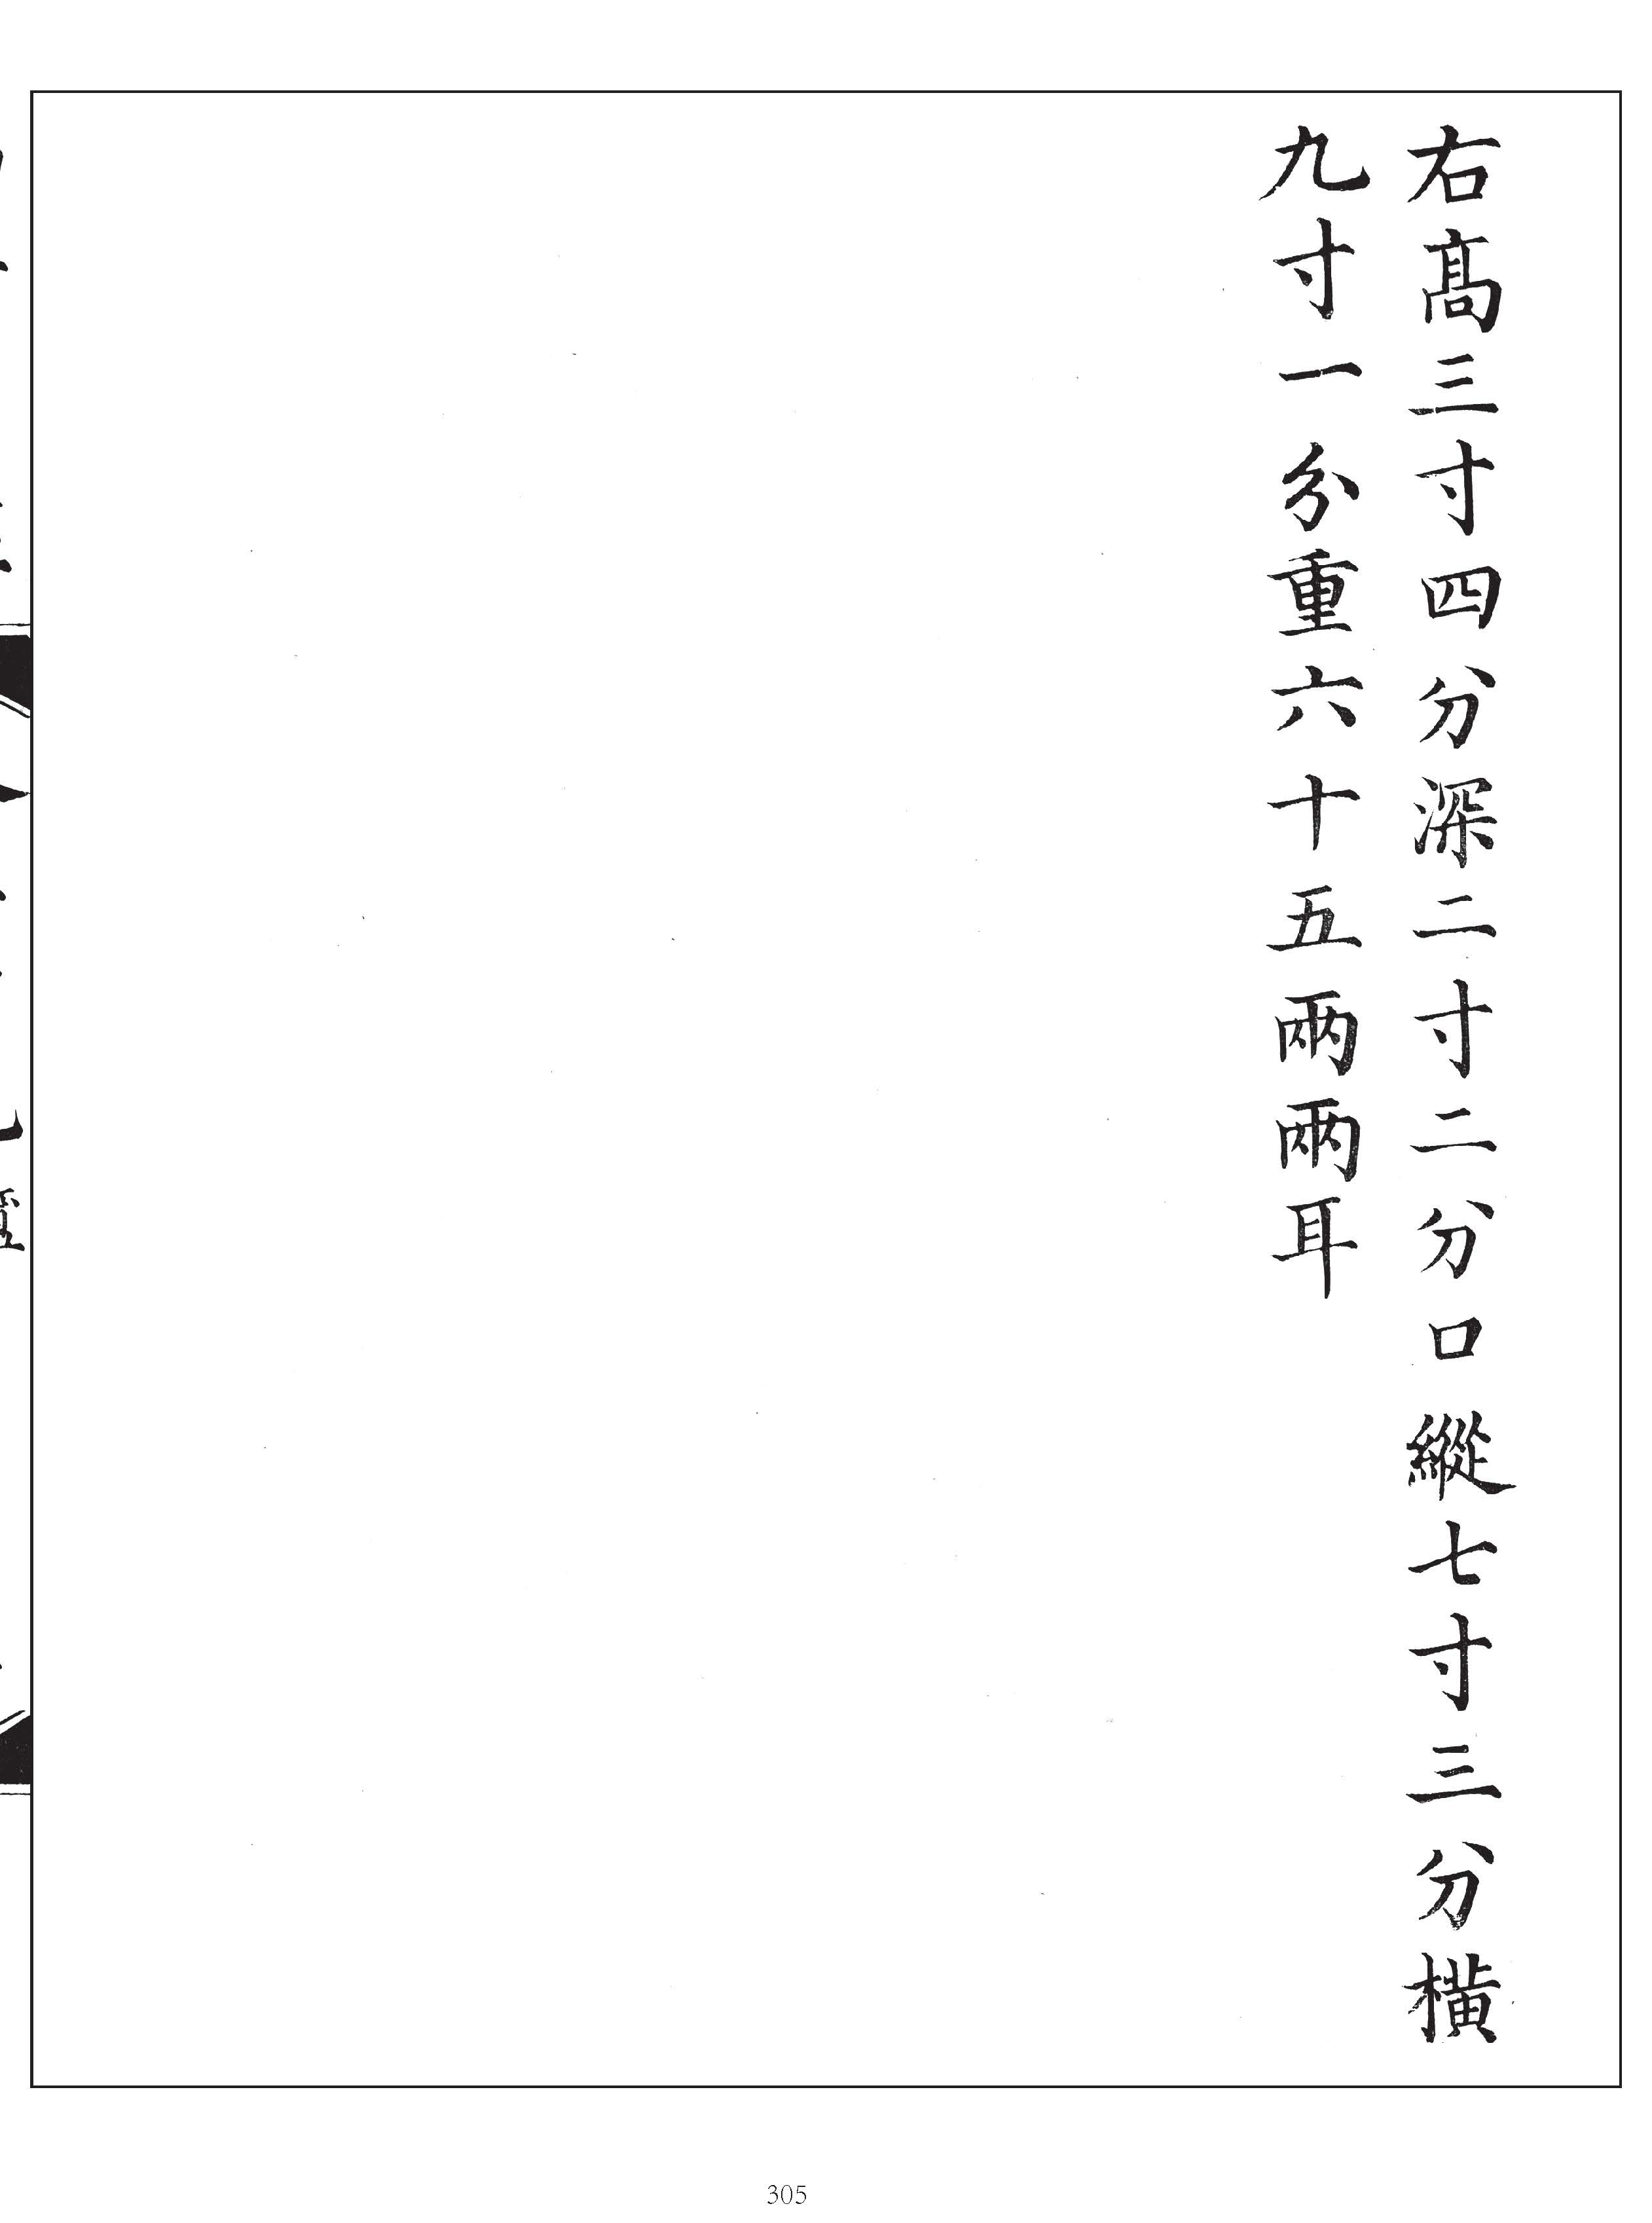 右髙三寸四分深二寸二分口縱七寸三分橫
九寸一分重六十五兩兩耳
305